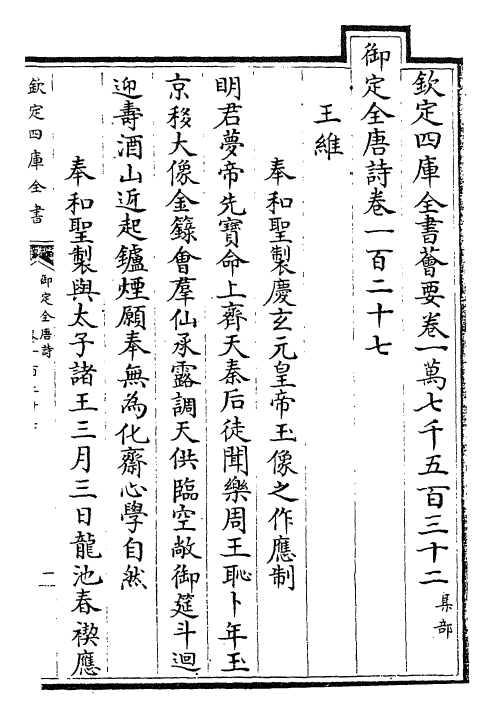 欽定四庫全書薈要卷一萬七千五百三十二 集部
御定全唐詩卷一百二十七
王維
奉和聖製慶玄元皇帝玉像之作應制
明君夢帝先寶命上齊天秦后徒聞樂周王恥卜年玉
京移大像金籙會羣仙承露調天供臨空敞御筵斗迴
迎壽酒山近起鑪煙願奉無為化齋心學自然
奉和聖製與太子諸王三月三日龍池春禊應
欽定四庫全書
御定全唐詩
卷一百二十七
一